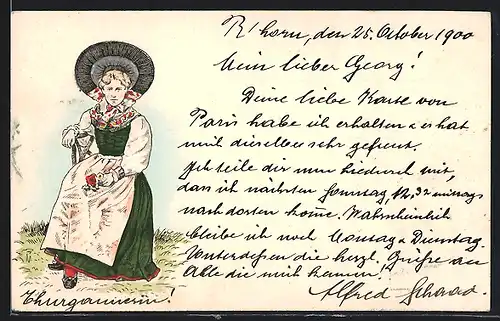 R'horn, den 25. October 1900
Mein lieber Georg!
Deine liebe Karte von
Paris habe ich erhalten & es hat
mich dieselbe sehr gefreut.
Ich teile dir nun hiedurch mit,
dass ich nächsten Sonntag, 12.32 mittags
nach dorten kome. Wahrscheinlich
bleibe ich noch Montag & Dienstag.
Unterdessen die herzl. Grüsse an
Alle die mich kennen,
Alfred Schaad
Thurgauerin!